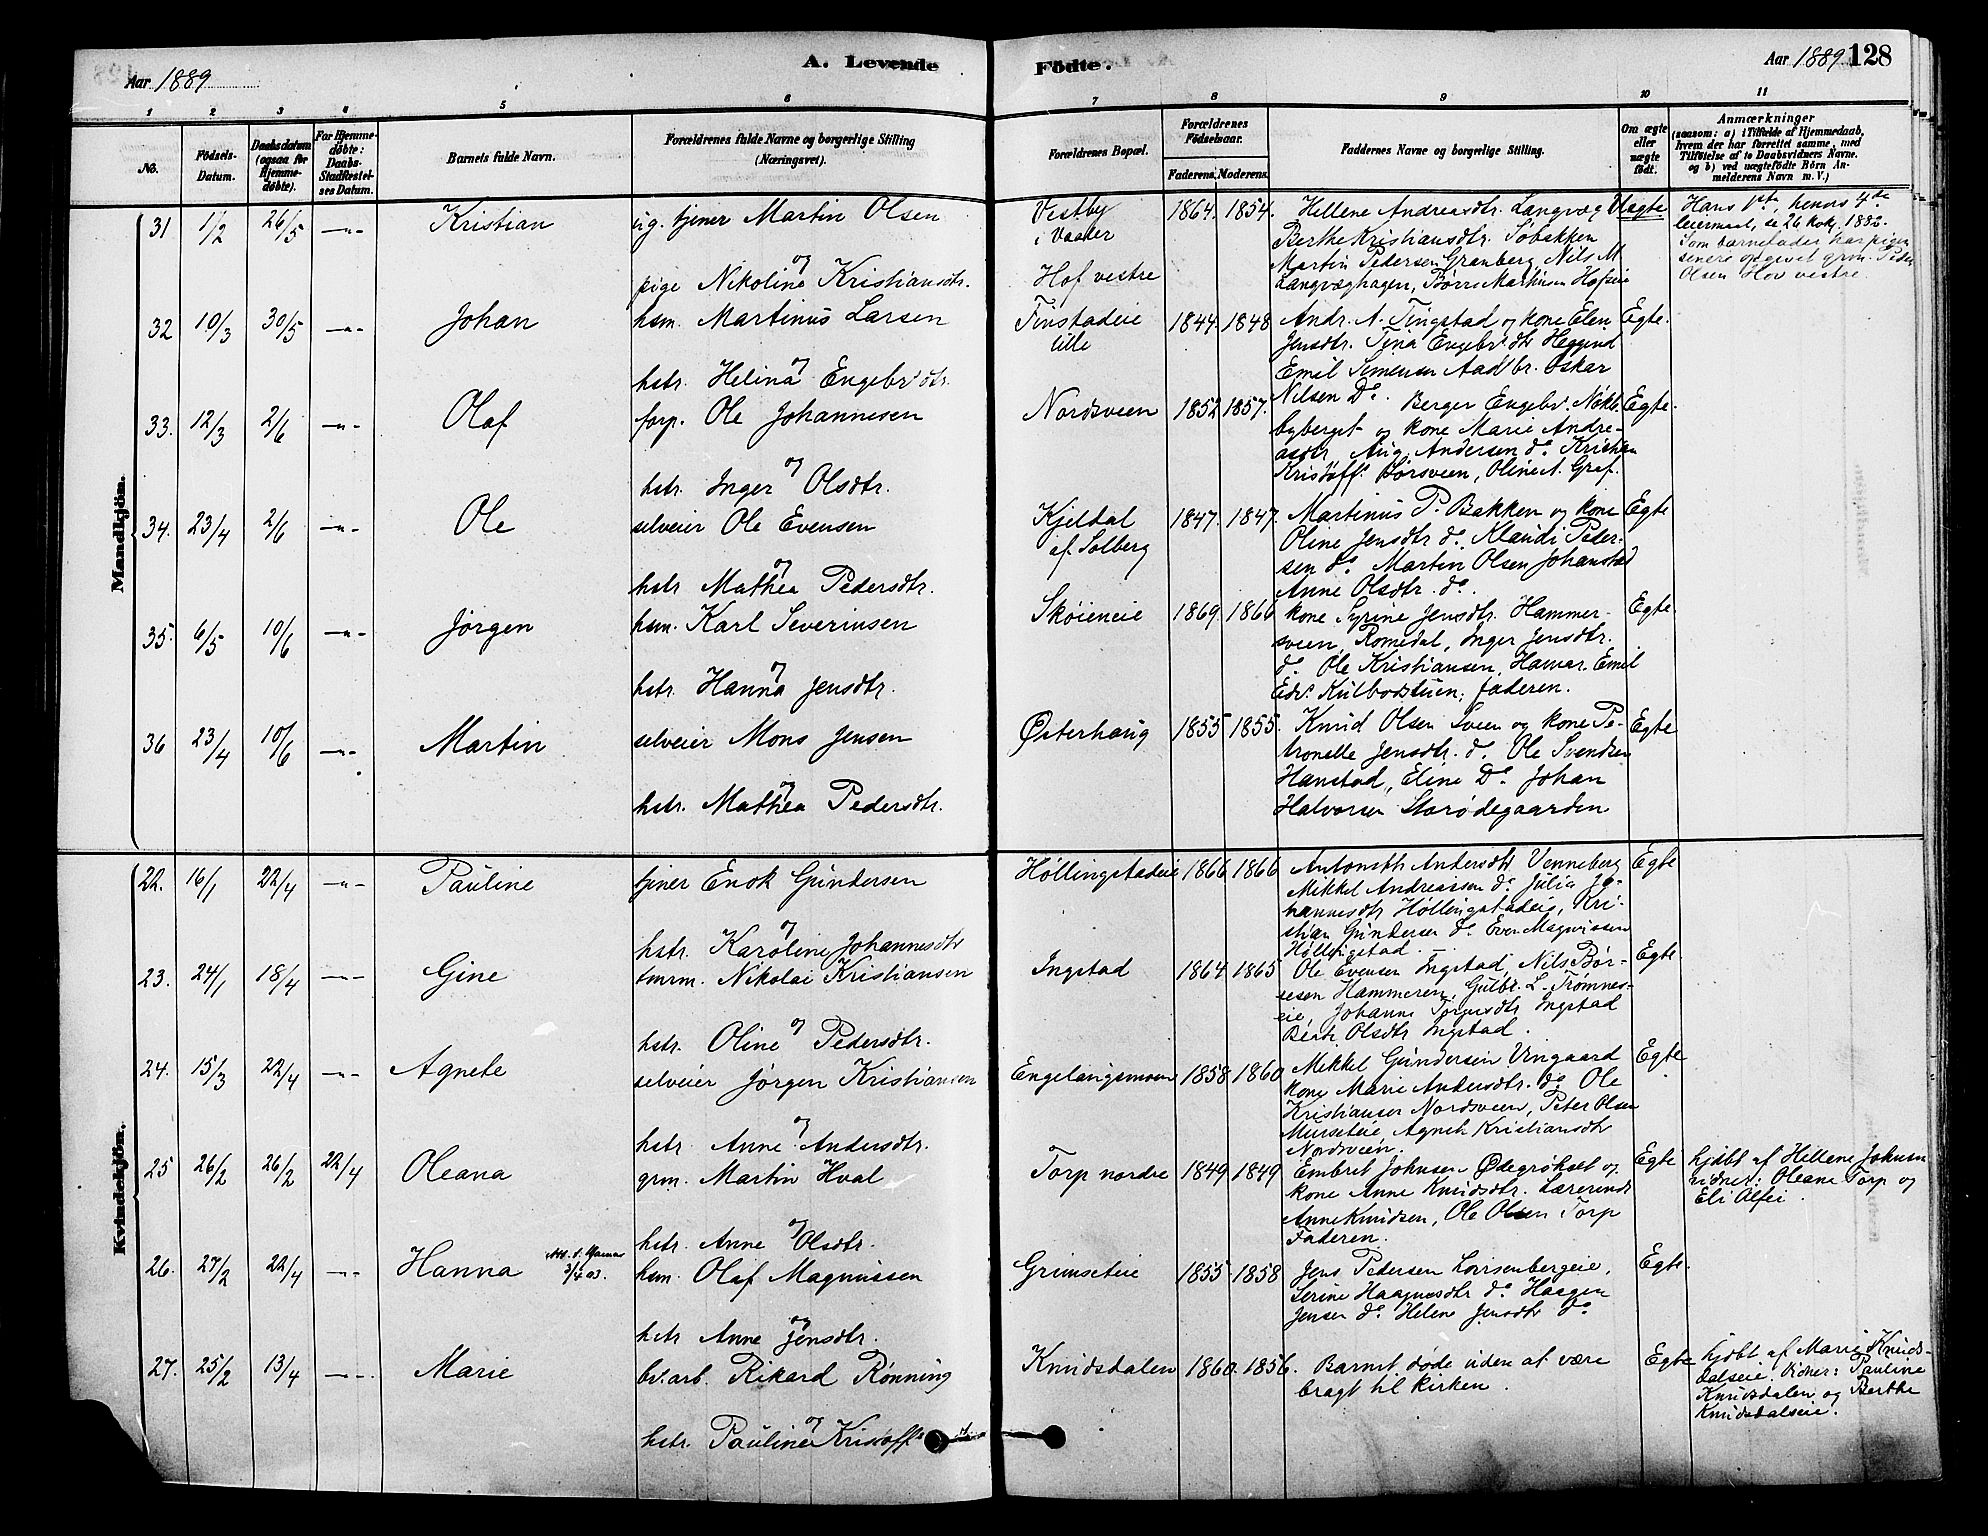 Aar 1889
A. Levende
Födte.
Aar 1889
128
1 2 3 4 5 6 7 8 9 10 11
No.
Födsels-
Datum.
Daabsdatum
(ogsaa for
Hjemme-
döbte).
For Hjemme-
döbte:
Daabs-
Stadfæstel-
ses Datum.
Barnets fulde Navn.
Forældrenes fulde Navne og borgerlige Stilling
(Næringsvei).
Forældrenes Bopæl.
Forældrenes
Födselsaar.
Faderens. Moderens.
Faddernes Navne og borgerlige Stilling.
Om ægte
eller
uægte
födt.
Anmærkninger
(saasom: a) i Tilfælde af Hjemmedaab,
hvem der har forrettet samme, med
Tilföielse af to Daabsvidners Navne.
og b) ved uægtefödte Börn An-
melderens Navn m. V.)
Mandkjön.
31 1/2 26/5 -"- Kristian
ug. tjener Martin Olsen
og
pige Nikoline Kristiansdtr.
Vestby
i Vaaler
Hof vestre
1864. 1854.
Hellene Andreasdtr. Langvæg
Berthe Kristiansdtr. Søbakken
Martin Pedersen Granberg Nils M
Langvæghagen, Børre Mathisen Hofseie
Uægte
Hans 1ste, hendes 4de
leiermaal, se 26 1882.
Som barnefader har pigen
senere opgivet grm. Peder
Olsen Hov vestre.
32 10/3 30/5 -"- Johan
hsm. Martinus Larsen
og
hstr. Helina Engebr. dtr.
Finstadeie
lille
1844. 1848
Andr. A. Tingstad og kone Elen
Jensdtr. Tina Engebr. dtr Heggind
Emil Simensen Aadlbr. Oskar
Nilsen Do.
Egte.
33. 12/3 2/6 -"- Olaf
forp. Ole Johannesen
og
hstr. Inger Olsdtr.
Nordsveen
1852 1857.
Berger Engebr. Nøkle-
byberget og kone Marie Andre-
asdtr, Aug. Andersen do. Kristian
Kristoff. Børsveen, Oline A. Graf.
Egte.
34. 23/4 2/6 -"- Ole
selveier Ole Evensen
og
hstr. Mathea Pedersdtr.
Kjeldal
af Solberg
1847. 1847.
Martinus P. Bakken og kone
Oline Jensdtr do. Klaudi Peder-
sen do. Martin Olsen Johanstad
Anne Olsdtr. do.
Egte
35. 6/5 10/6 -"- Jørgen
hsm. Karl Severinsen
og
hstr. Hanna Jensdtr.
Skøieneie
1869. 1866
kone Syrine Jensdtr. Hammer-
sveen, Romedal, Inger Jensdtr.
do. Ole Kristiansen, Hamar. Emil
Edv. Kulbodstuen, faderen.
Egte.
36 23/4 10/6 -"- Martin
selveier Mons Jensen
og
hstr. Mathea Pedersdtr.
Østerhaug
1855 1855.
Knud Olsen Sveen og kone Pe-
tronelle Jensdtr. do. Ole Svendsen
Hanstad, Eline Do. Johan
Halvorsen Storødegaarden
Egte
Kvindekjön.
22. 16/1 22/4 -"- Pauline
tjener Enok Gundersen
og
hstr. Karoline Johannesdtr
Høllingstadeie
1866 1866
Antonette Andersdtr Venneberg
Mikkel Andreassen do. Julia Jo-
hannesdtr Høllingstadeie, Kri-
stian Gundersen do. Even Magnussen
Høllingstad.
Egte
23. 24/1 18/4 -"- Gine
tmrm. Nikolai Kristiansen
og
hstr. Oline Pedersdtr.
Ingstad
1864 1865
Ole Evensen Ingstad, Nils Bør-
sesen Hammeren, Gulbr. L. Trømnes-
eie, Johanne Torgersdtr Ingstad
Beate Olsdtr Ingstad.
Egte.
24. 15/3 22/4 -"- Agnete
selveier Jörgen Kristiansen
og
hstr. Anne Andersdtr.
Engelaugsmoen
1858 1860
Mikkel Gundersen Vingaard
kone Marie Andersdtr. do. Ole
Kristiansen Nordsveen, Peter Olsen
Mursteie Agnete Kristiansdtr
Nordsveen.
Egte
25 26/2 26/2 22/4 Oleana
grm. Martin Hval
og
hstr. Anne Olsdtr.
Torp nordre
1849 1849
Embret Johnsen Ødegrøkset og
kone Anne Knudsdtr. Lærerinde
Anne Knudsen, Ole Olsen Torp
Faderen.
Egte
hjdbt af Hellene Johnsen
vidner: Oleane Torp og
Eli Alfei.
26. 27/2 22/4 -"- Hanna
3/4 03.
hsm. Olaf Magnussen
og
hstr Anne Jensdtr.
Grimseteie
1855 1858
Jens Pedersen Loirsenbergeie,
Serine Haagensdtr do. Haagen
Jensen do. Helene Jensdtr do
Egte.
27. 25/2 13/4 -"- Marie
bv. arb. Rikard Rønning
og
hstr. Pauline Kristoff.
Knudsdalen
1860. 1856.
Barnet døde uden at være
bragt til kirken.
Egte
hjdbt af Marie Knuds-
dalseie. Vidner: Pauline
Knudsdalen og Berthe
Knudsdalseie.